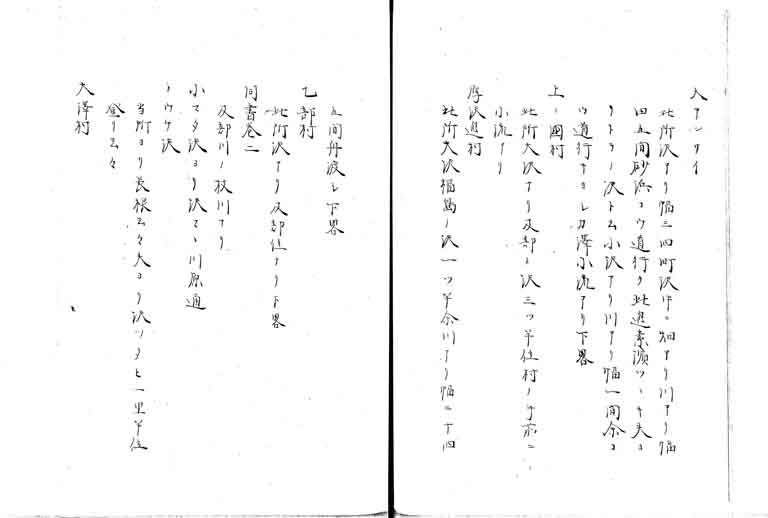 入アンタイ
此所沢アリ幅三四町沢中ニ畑アリ川アリ幅
四五間砂浜ヨウ道行ク此邊素濱ツヽキ夫ヨ
リトラノ沢ト云小沢アリ川アリ幅一間余ヨ
ウ道行ナカレカ澤小流アリ下畧
上ノ國村
此所大沢アリ及部ノ沢三ツ半位村ノ手前ニ
小流アリ
厚沢邉村
此所大沢福島ノ沢一ツ半余川アリ幅二十四
五間舟渡し下畧
乙部村
此所沢アリ及部位アリ下畧
同書巻二
及部川ノ枝川アリ
小マタ沢ヨリ沢マヽ川原通
ノウケ沢
当所ヨリ長根云々夫ヨリ沢ツタヒ一里半位
登リ云々
大澤村